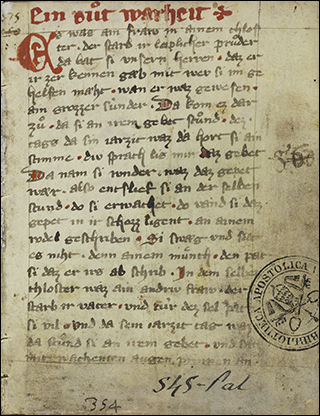 Ein gůt warheit
Es was ain fraw in ainem chlos
ter · der starb ir leiplicher průder
da bat si unsern herren · daz er
ir ze kennen gäb mit wev si im ge
helfen maht · wan er waz gewesen ·
ain grozzer sunder · Da kom ez dar
zů · da si an irem gebet stůnd · dez
tags da sin iarzit waz da hort si ain
stimme · div sprach lis mir daz gebet
Da nam si wunder · waz daz gepet
wär · also entslief si an der selben
stund · do si erwachet · do vand si daz
gepet in ir schozz ligent · an ainem
rodel geschriben · Si swag und sait
es niht · denn ainem münch · den pat
si daz er irs ab schrib · In dem selben
chloster waz ain andriu fraw · der
starb ir vater · und für dez sel pat
si vil · und da sein iarzit tag waz
da stůnd si an irem gebet · und sah
mit wachenten augen
BIBLIOTECA APOSTOLICA
545-Pal
354